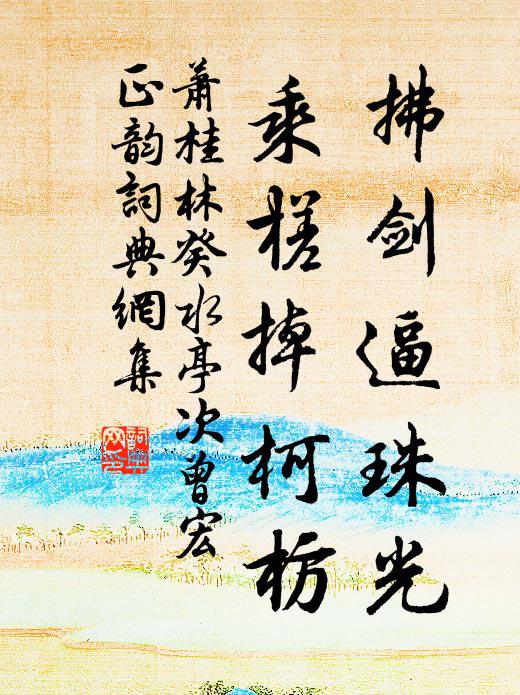 拂剑逼珠光
乘槎掉柯枥
萧桂林癸水亭次曾宏
正韵詞典網集